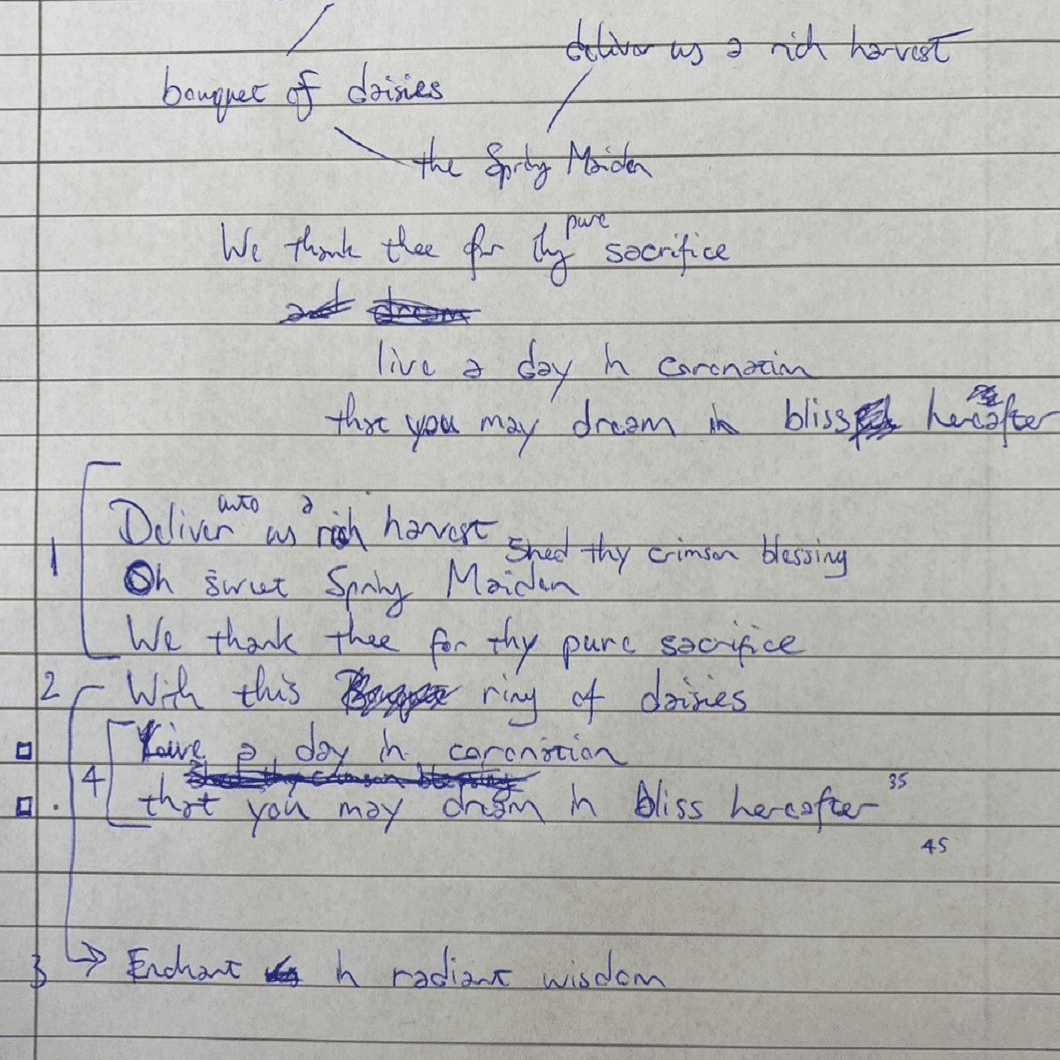 deliver us a rich harvest
bouquet of daisies
the Spring Maiden
pure
We thank thee for thy sacrifice
and dream
live a day in coronation
that you may dream in bliss hereafter
unto a
Deliver us rich harvest
1
Shed thy crimson blessing
Oh sweet Spring Maiden
We thank thee for thy pure sacrifice
2 With this ring of daisies
Live a day in coronation
4
Shed thy crimson blessing
35
that you may dream in bliss hereafter
45
3 Enchant in radiant wisdom